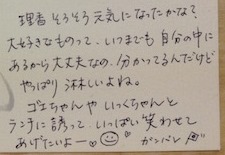 理香 そろそろ元気になったかな？
大好きなものって、いつまでも自分の中に
あるから大丈夫なの、分かってるんだけど
やっぱり淋しいよね。
ゴエちゃんや いっくちゃんと
ランチに誘って、いっぱい笑わせて
あげたいよー
ガンバレ